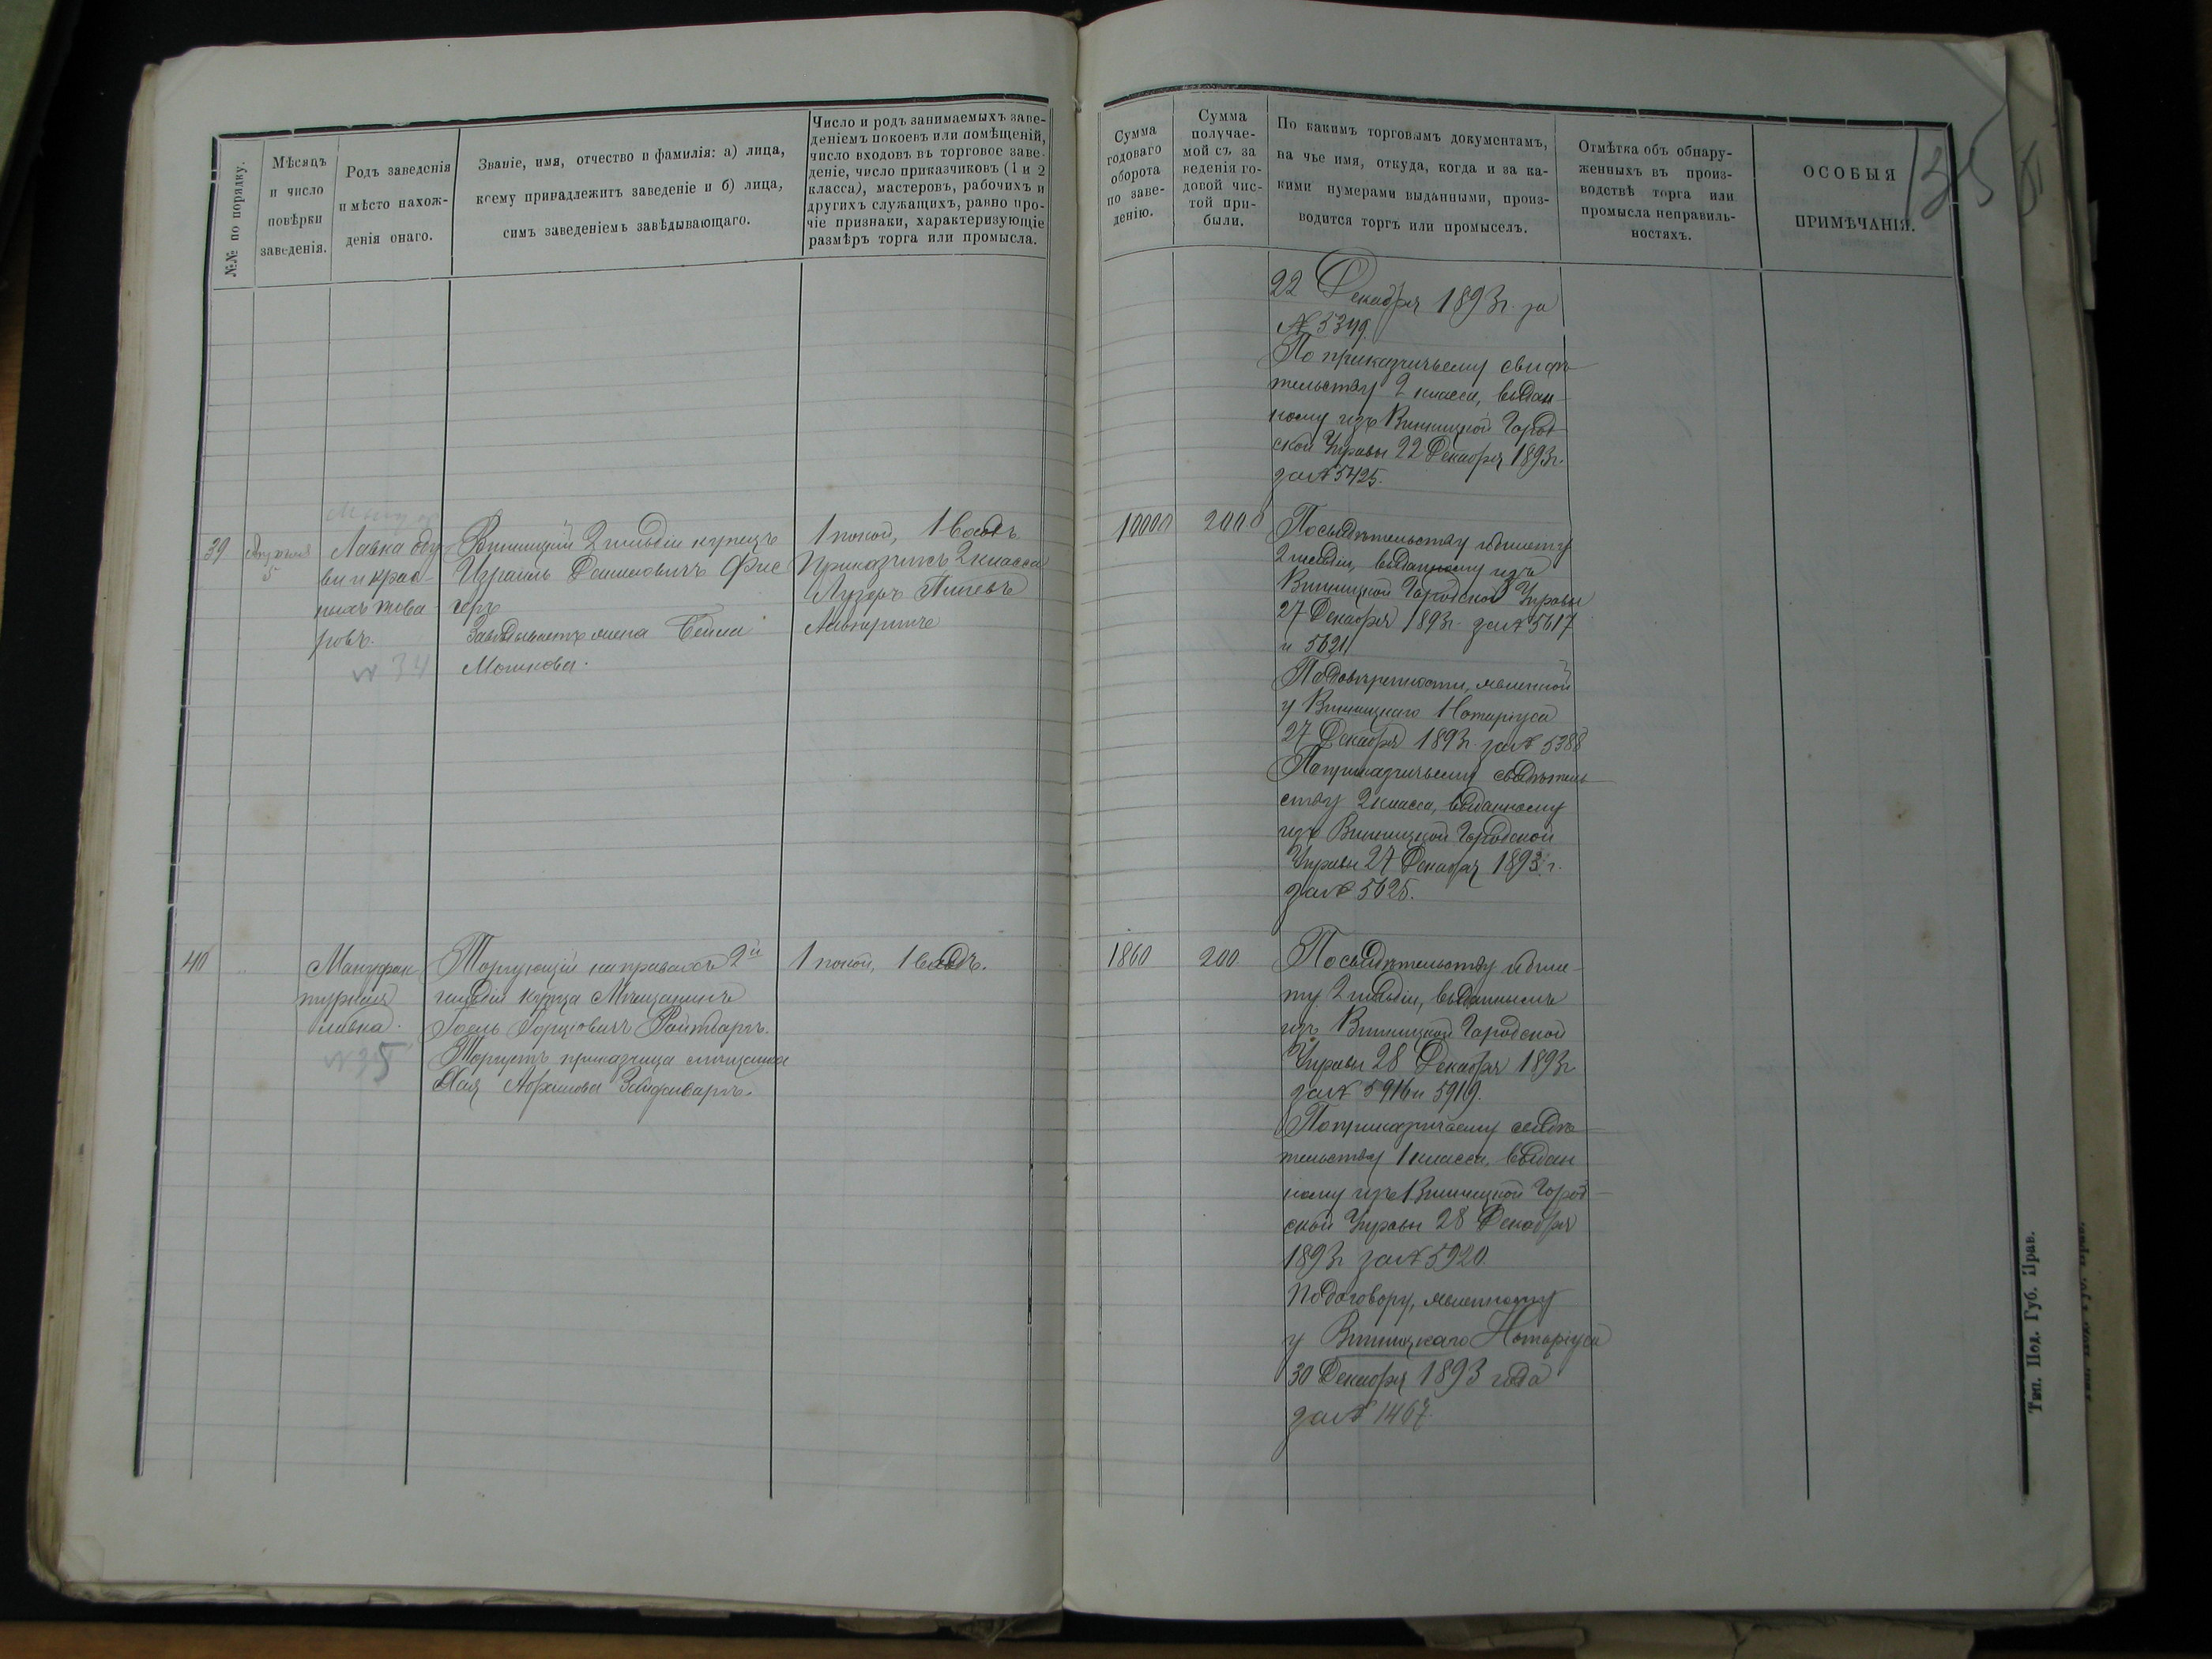 №№ по порядку.
Мѣсяцъ
и число
повѣрки
заведенія.
Родъ заведенія
и мѣсто нахож-
денія онаго.
Званіе, имя, отчество и фамилія: а) лица,
коему принадлежитъ заведеніе и б) лица,
симъ заведеніемъ завѣдывающаго.
Число и родъ занимаемыхъ заве-
деніемъ покоевъ или помѣщеній,
число входовъ въ торговое заве-
деніе, число приказчиковъ (1 и 2
класса), мастеровъ, рабочихъ и
другихъ служащихъ, равно про-
чіе признаки, характеризующіе
размѣръ торга или промысла.
39
5
Лавка обу
ви и крас-
ныхъ това
ровъ.
№ 34
Винницкій 2 гильдіи купецъ
Израиль Фис
херъ
Завѣдываетъ жена Бейла
Мошкова.
1 покой, 1 входъ
Приказчикъ 2 класса
40
Мануфак-
турная
лавка.
№ 35
Торгующій на правахъ 2й
гильдіи купца Мѣщанинъ
Торгуетъ приказчица мѣщанка
Хая Абрамова
1 покой, 1 входъ.
Сумма
годоваго
оборота
по заве-
денію.
Сумма
получае-
мой съ за
веденія го-
довой чис-
той при-
были.
По какимъ торговымъ документамъ,
на чье имя, откуда, когда и за ка-
кими нумерами выданными, произ-
водится торгъ или промыселъ.
Отмѣтка объ обнару-
женныхъ въ произ-
водствѣ торга или
промысла неправиль-
ностяхъ.
ОСОБЫЯ
ПРИМѢЧАНІЯ.
135
22 Декабря 1893 г. за
№ 5349
По приказчичьему свидѣ-
тельству 2 класса, выдан-
ному изъ Винницкой Город-
ской Управы 22 Декабря 1893 г.
за № 5425.
10000
2000
По свидѣтельству и билету
2 гильдіи, выданному изъ
Винницкой Городской Управы
27 Декабря 1893 г. за № 5617
и 5621
По довѣренности, явленной
у Винницкаго Нотаріуса
27 Декабря 1893 г. за № 5388
По приказчичьему свидѣтель-
ству 2 класса, выданному
изъ Винницкой Городской
Управы 27 Декабря 1893 г.
за № 5625.
1860
200
По свидѣтельству и биле-
ту 2 гильдіи, выданнымъ
изъ Винницкой Городской
Управы 28 Декабря 1893 г.
за № 5916 и 5919.
По приказчичьему свидѣ-
тельству 1 класса, выдан
ному изъ Винницкой Город-
ской Управы 28 Декабря
1893 г. за № 5920.
По договору, явленному
у Винницкаго Нотаріуса
30 Декабря 1893 года
за № 1467.
Тип. Под. Губ. Прав.